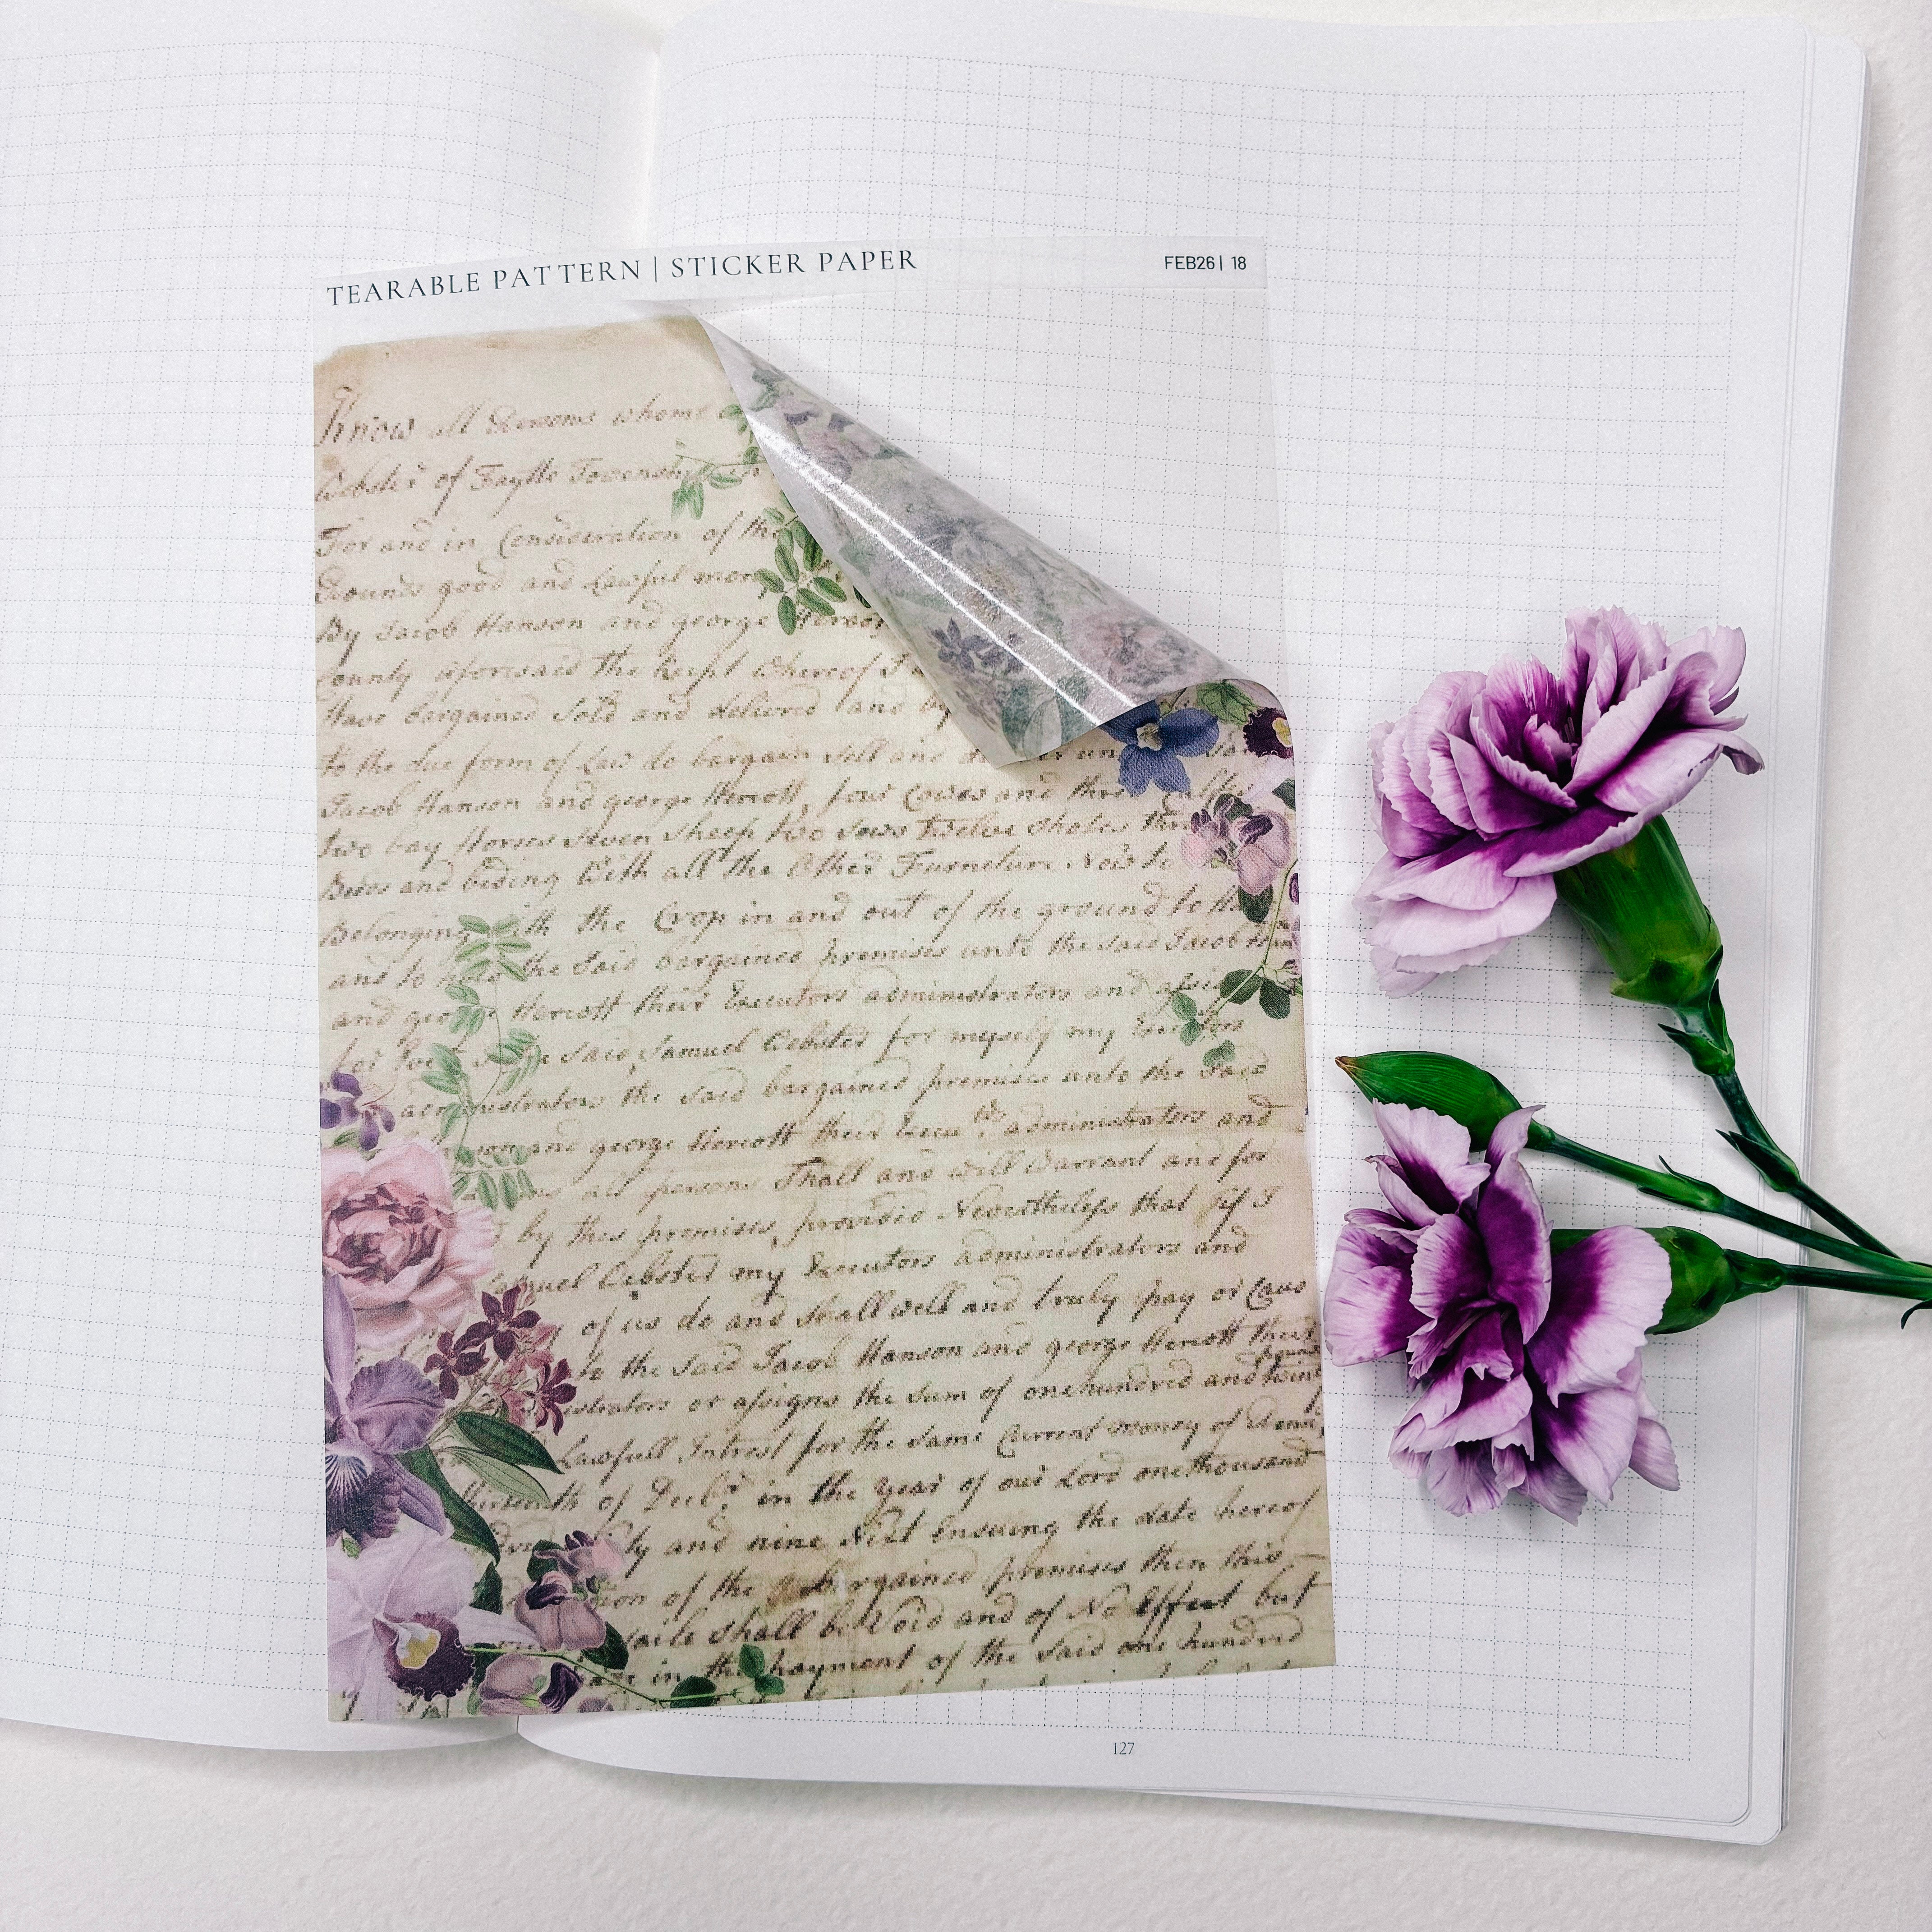 TEARABLE PATTERN | STICKER PAPER
FEB26 | 18
Know all Persons whome
Webster of Fayette Townsh
For and in Consideration of the
Pounds good and Lawful mon
By Jacob Hanson and george Herrott
County aforesaid the Recept Whereof I
Have bargained Sold and delivered and by
to the due form of Law do bargain Sell and un
Jacob Hanson and george Herrott, four Cowes and three Calfs
two bay Horses Seven Sheep two Sows twelve Shotes
Beds and beding With all the Other Furneture Now
Belonging the Crop in and out of the ground to
and to the Said bargained premises unto the Said Jacob
and george Herrott their Executors administrators and
Said Samuel Webster for myself my Executors
administrators the Said bargained premises unto the Said
and george Herrott their administrators and
all persons Shall and will Warrant and for
by this premises, provided Nevertheless that if I
Samuel Webster my Executors administrators and
of us do and Shall well and truly pay or Caus
to the Said Jacob Hanson and george Herrott their
or asigns the Sum of onehundred and
Lawfull Intrest for the Same Current money of
of Decbr in the year of our Lord onethousand
and nine Next Ensuing the date hereof
of the bargained premises then this
Saile Shall be Void and of No Effect but
in the payment of the Said one hundred
127